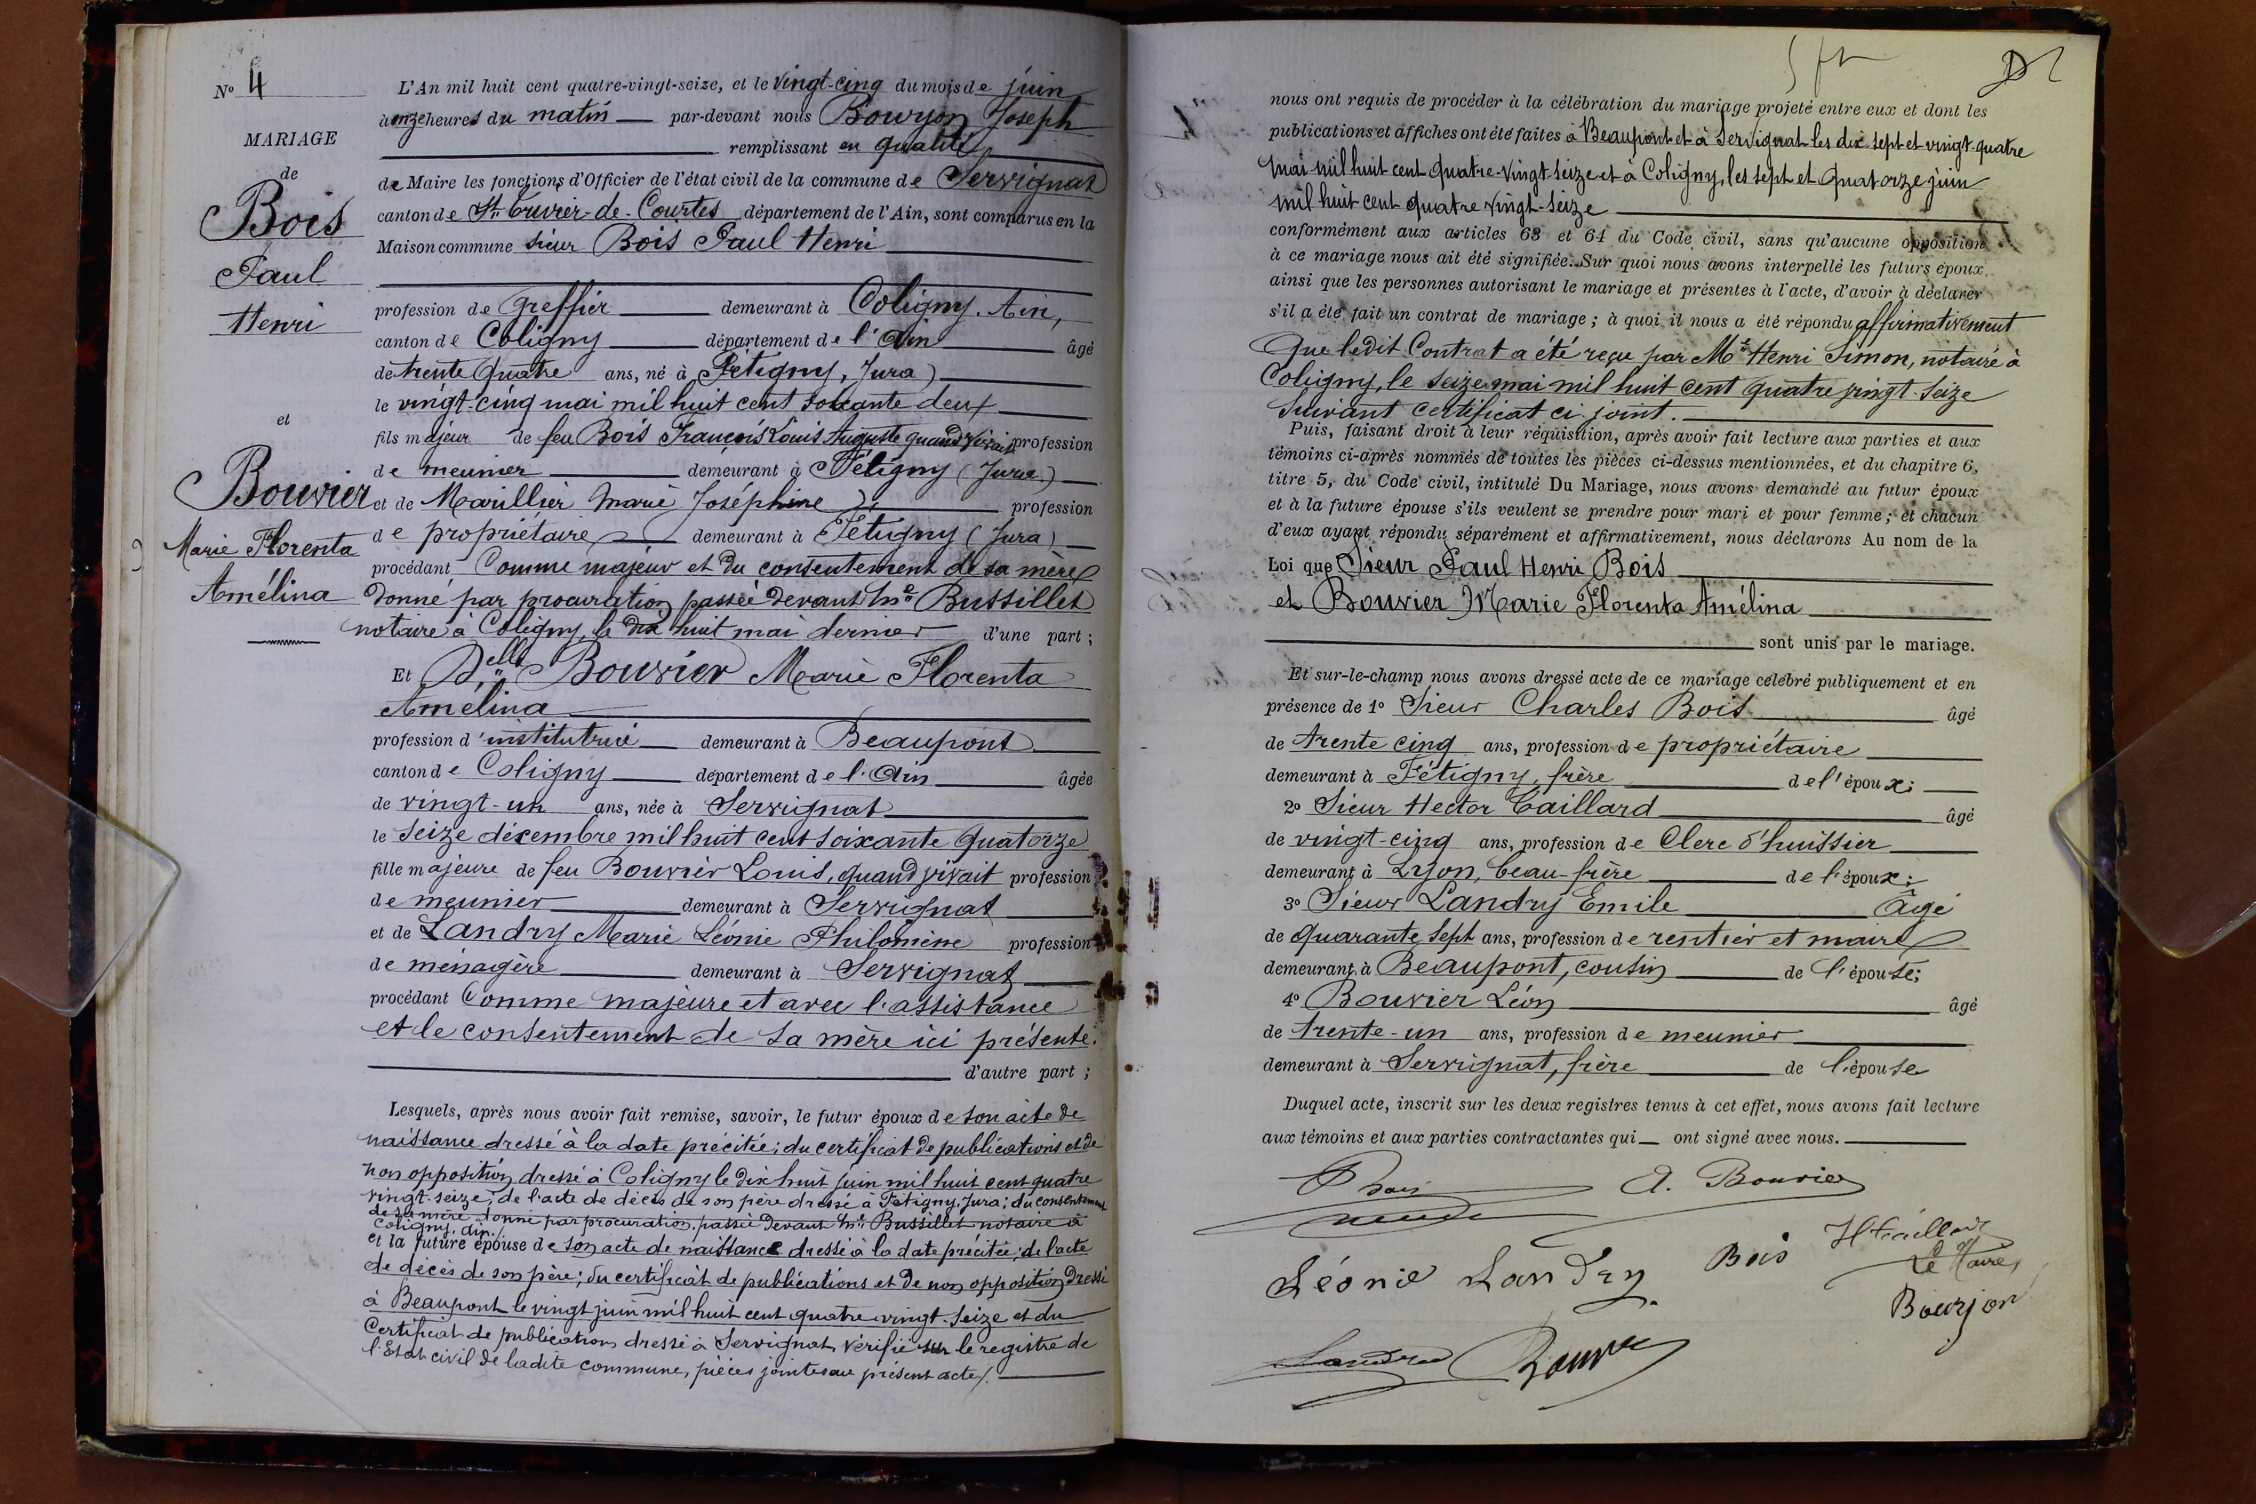 N° 4
MARIAGE
de
Bois
Paul
Henri
et
Bouvier
Marie Florenta
Amélina
L'An mil huit cent quatre-vingt-seize, et le vingt-cinq du mois de juin
à onze heures du matin par-devant nous Bourjon Joseph
remplissant en qualité
de Maire les fonctions d'Officier de l'état civil de la commune de Servignat
canton de St Trivier-de-Courtes département de l'Ain, sont comparus en la
Maison commune sieur Bois Paul Henri
profession de Greffier demeurant à Coligny. Ain,
canton de Coligny département de l'Ain âgé
de trente quatre ans, né à Fétigny, Jura)
le vingt-cinq mai mil huit cent soixante deux
fils majeur de feu Bois François Louis Auguste quand vivait profession
de meunier demeurant à Fétigny (Jura.)
et de Marillier Marie Joséphine profession
de propriétaire demeurant à Fétigny (Jura)
procédant Comme majeur et du consentement de sa mère
donné par procuration passée devant Me Bussillet
notaire à Coligny, le dix huit mai dernier d'une part;
Et Delle Bouvier Marie Florenta
Amélina
profession d'institutrice demeurant à Beaupont
canton de Coligny département de l'Ain âgée
de vingt-un ans, née à Servignat
le seize décembre mil huit cent soixante quatorze
fille majeure de feu Bouvier Louis, quand vivait profession
de meunier demeurant à Servignat
et de Landry Marie Léonie Philomène profession
de ménagère demeurant à Servignat
procédant Comme majeure et avec l'assistance
et le consentement de sa mère ici présente.
d'autre part;
Lesquels, après nous avoir fait remise, savoir, le futur époux de son acte de
naissance dressé à la date précitée; du certificat de publications et de
non opposition dressé à Coligny le dix huit juin mil huit cent quatre
vingt-seize; de l'acte de décès de son père dressé à Fétigny, Jura; du consentement
de sa mère donné par procuration passée devant Me Bussillet notaire à
Coligny, Ain.
et la future épouse de son acte de naissance dressé à la date précitée; de l'acte
de décès de son père; du certificat de publications et de non opposition dressé
à Beaupont le vingt juin mil huit cent quatre-vingt-seize et du
Certificat de publication dressé à Servignat vérifié sur le registre de
l'État civil de ladite commune, pièces jointes au présent acte.
nous ont requis de procéder à la célébration du mariage projeté entre eux et dont les
publications et affiches ont été faites à Beaupont et à Servignat les dix sept et vingt-quatre
mai mil huit cent quatre-vingt-seize et à Coligny, les sept et quatorze juin
mil huit cent quatre vingt-seize
conformément aux articles 63 et 64 du Code civil, sans qu'aucune opposition
à ce mariage nous ait été signifiée. Sur quoi nous avons interpellé les futurs époux,
ainsi que les personnes autorisant le mariage et présentes à l'acte, d'avoir à déclarer
s'il a été fait un contrat de mariage; à quoi il nous a été répondu affirmativement
Que ledit Contrat a été reçu par Me Henri Simon, notaire à
Coligny, le seize mai mil huit cent quatre vingt-seize
suivant certificat ci-joint.
Puis, faisant droit à leur réquisition, après avoir fait lecture aux parties et aux
témoins ci-après nommés de toutes les pièces ci-dessus mentionnées, et du chapitre 6,
titre 5, du Code civil, intitulé Du Mariage, nous avons demandé au futur époux
et à la future épouse s'ils veulent se prendre pour mari et pour femme; et chacun
d'eux ayant répondu séparément et affirmativement, nous déclarons Au nom de la
Loi que Sieur Paul Henri Bois
et Bouvier Marie Florenta Amélina
sont unis par le mariage.
Et sur-le-champ nous avons dressé acte de ce mariage célébré publiquement et en
présence de 1° Sieur Charles Bois âgé
de trente cinq ans, profession de propriétaire
demeurant à Fétigny, frère de l'époux;
2° Sieur Hector Caillard âgé
de vingt-cinq ans, profession de Clerc d'huissier
demeurant à Lyon, beau-frère de l'époux;
3° Sieur Landry Emile âgé
de quarante sept ans, profession de rentier et maire
demeurant à Beaupont, cousin de l'épouse;
4° Bouvier Léon âgé
de trente-un ans, profession de meunier
demeurant à Servignat, frère de l'épouse
Duquel acte, inscrit sur les deux registres tenus à cet effet, nous avons fait lecture
aux témoins et aux parties contractantes qui ont signé avec nous.
P Bois A. Bouvier
Léonie Landry Bois H Caillard
Le Maire,
Bourjon
Landry Bouvier